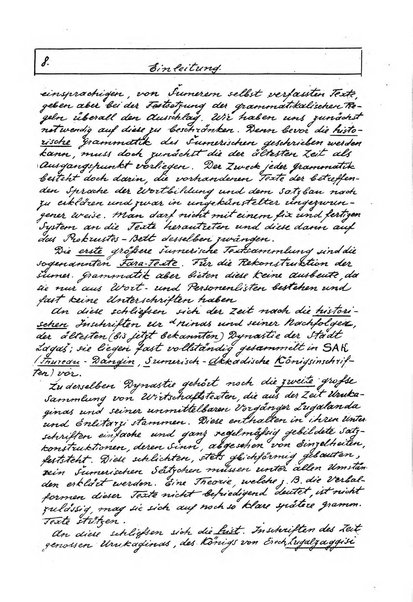 8.
Einleitung
einsprachigen, von Sumerern selbst verfassten Texte,
geben aber bei der Festsetzung der grammatikalischen Re-
geln überall den Ausschlag. Wir haben uns zunächst
notwendig auf diese zu beschränken. Denn bevor die histo-
rische Grammatik des Sumerischen geschrieben werden
kann, muss doch zunächst die der ältesten Zeit als
Ausgangspunkt vorliegen. Der Zweck jeder Grammatik
besteht doch darin, die vorhandenen Texte der betreffen-
den Sprache der Wortbildung und dem Satzbau nach
zu erklären und zwar in ungekünstelter ungezwun-
gener Weise. Man darf nicht mit einem fix und fertigen
System an die Texte herantreten und diese dann auf
das Prokrustes-Bett desselben zwängen.
Die erste größere sumerische Textsammlung sind die
sogenannten Fara-Texte. Für die Rekonstruktion der
sumer. Grammatik aber bieten diese keine Ausbeute, da
sie nur aus Wort- und Personenlisten bestehen und
fast keine Unterschriften haben
An diese schließen sich der Zeit nach die histori-
schen Inschriften Ur-dninas und seiner Nachfolger,
der ältesten (bis jetzt bekannten) Dynastie der Stadt
Lagaš; sie liegen fast vollständig gesammelt in SAK
(Thureau-Dangin, Sumerisch-Akkadische Königsinschrif-
ten) vor.
Zu derselben Dynastie gehört noch die zweite große
Sammlung von Wirtschaftstexten, die aus der Zeit Uruka-
ginas und seiner unmittelbaren Vorgänger Lugalanda
und Enlitarzi stammen. Diese enthalten in ihren Unter-
schriften einfache und ganz regelmäßig gebildete Satz-
konstruktionen, deren Sinn, abgesehen von Einzelheiten,
feststeht. Diese schlichten, stets gleichförmig gebauten,
rein Sumerischen Sätzchen müssen unter allen Umstän-
den erklärt werden. Eine Theorie, welche z. B. die Verbal-
formen dieser Texte nicht befriedigend deutet, ist nicht
zulässig, mag sie sich auf noch so klare spätere gramm.
Texte stützen.
An diese schließen sich die hist. Inschriften des Zeit-
genossen Urukaginas, des Königs von Erech Lugalzaggisi